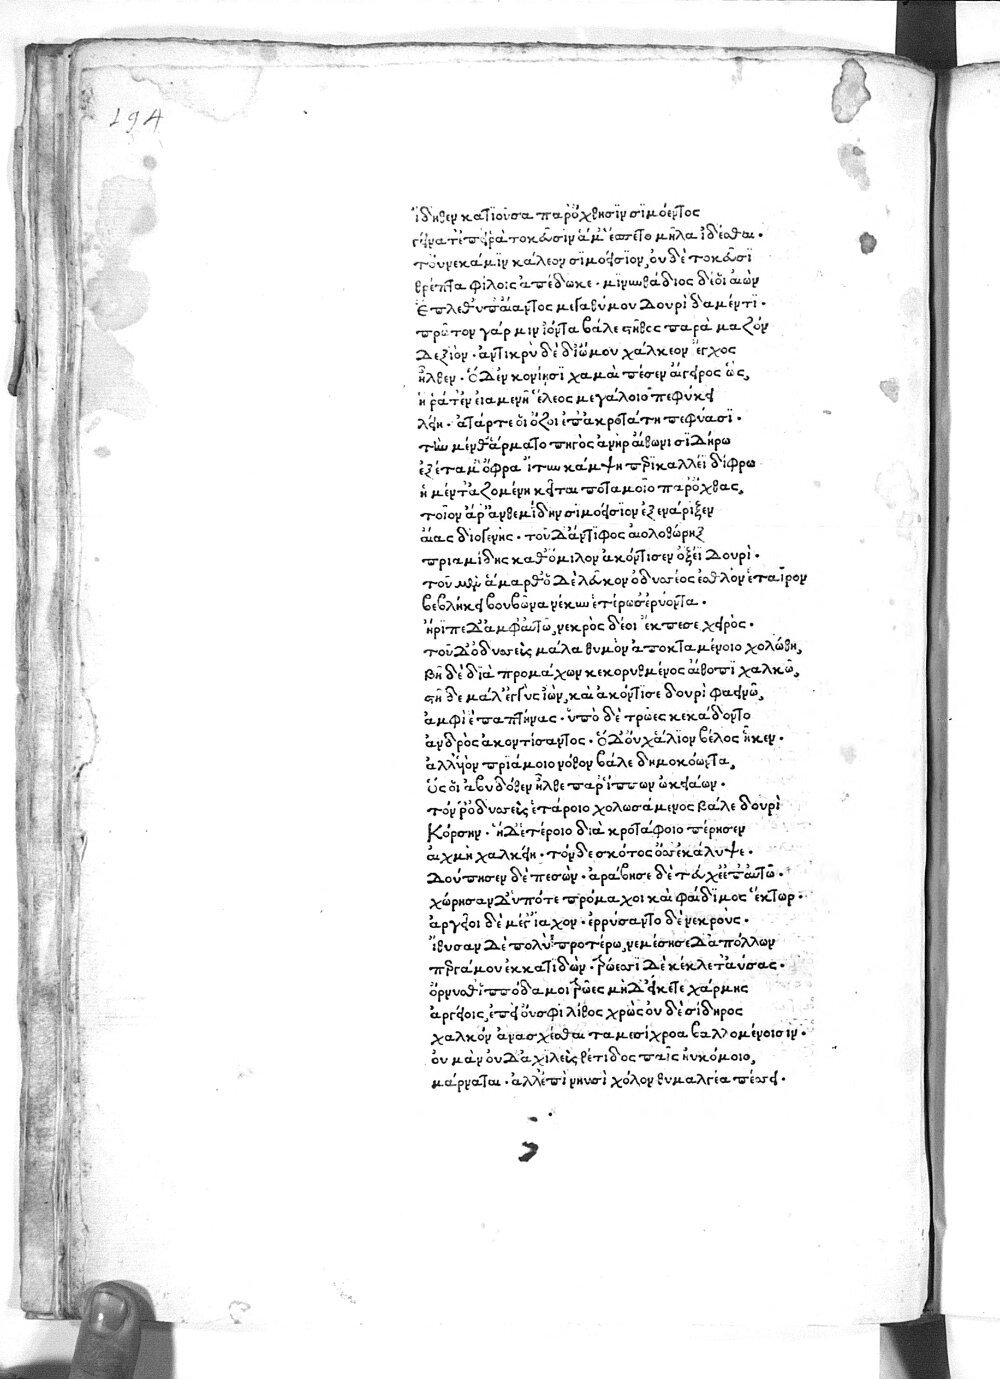 194
ἴδηθεν κατιοῦσα παρ' ὄχθῃσιν σιμόεντος
γείνατ' ἐπεί ῥα τοκεῦσιν ἅμ' ἕσπετο μῆλα ἰδέσθαι·
τοὔνεκά μιν κάλεον σιμοείσιον, οὐδὲ τοκεῦσι
θρέπτα φίλοις ἀπέδωκε· μινυνθάδιος δέ οἱ αἰὼν
ἔπλεθ' ὑπ' αἴαντος μεγαθύμου δουρὶ δαμέντι·
πρῶτον γάρ μιν ἰόντα βάλε στῆθος παρὰ μαζὸν
δεξιόν· ἀντικρὺ δὲ δι' ὤμου χάλκεον ἔγχος
ἦλθεν· ὃ δ' ἐν κονίῃσι χαμαὶ πέσεν αἴγειρος ὥς,
ἥ ῥά τ' ἐν εἱαμενῇ ἕλεος μεγάλοιο πεφύκει
λείη· ἀτάρ τέ οἱ ὄζοι ἐπ' ἀκροτάτῃ πεφύασι·
τὴν μέν θ' ἁρματοπηγὸς ἀνὴρ αἴθωνι σιδήρῳ
ἐξέταμ' ὄφρα ἴτυν κάμψῃ περικαλλέϊ δίφρῳ
ἣ μέν τ' ἀζομένη κεῖται ποταμοῖο παρ' ὄχθας,
τοῖον ἄρ' ἀνθεμίδην σιμοείσιον ἐξενάριξεν
αἴας διογενής· τοῦ δ' ἄντιφος αἰολοθώρηξ
πριαμίδης καθ' ὅμιλον ἀκόντισεν ὀξέϊ δουρί·
τοῦ μὲν ἅμαρθ' ὃ δὲ λεῦκον ὀδυσσέος ἐσθλὸν ἑταῖρον
βεβλήκει βουβῶνα νέκυν ἑτέρωσ' ἐρύοντα·
ἤριπε δ' ἀμφ' αὐτῷ, νεκρὸς δέ οἱ ἔκπεσε χειρός·
τοῦ δ' ὀδυσσεὺς μάλα θυμὸν ἀποκταμένοιο χολώθη,
βῆ δὲ διὰ προμάχων κεκορυθμένος αἴθοπι χαλκῷ,
στῆ δὲ μάλ' ἐγγὺς ἰὼν, καὶ ἀκόντισε δουρὶ φαεινῷ,
ἀμφὶ ἓ παπτήνας· ὑπὸ δὲ τρῶες κεκάδοντο
ἀνδρὸς ἀκοντίσαντος· ὃ δ' οὐχ ἅλιον βέλος ἧκεν·
ἀλλ' υἱὸν πριάμοιο νόθον βάλε δημοκόωντα,
ὅς οἱ ἀβυδόθεν ἦλθε παρ' ἵππων ὠκειάων·
τόν ῥ' ὀδυσσεὺς ἑτάροιο χολωσάμενος βάλε δουρὶ
κόρσην· ἣ δ' ἑτέροιο διὰ κροτάφοιο πέρησεν
αἰχμὴ χαλκείη· τὸν δὲ σκότος ὄσσε κάλυψε·
δούπησεν δὲ πεσών· ἀράβησε δὲ τεύχε' ἐπ' αὐτῷ·
χώρησαν δ' ὑπό τε πρόμαχοι καὶ φαίδιμος ἕκτωρ·
ἀργεῖοι δὲ μέγ' ἴαχον· ἐρρύσαντο δὲ νεκρούς·
ἴθυσαν δὲ πολὺ προτέρω, νεμέσησε δ' ἀπόλλων
περγάμου ἐκκατιδών· τρώεσσι δὲ κέκλετ' ἀύσας·
ὄρνυσθ' ἱππόδαμοι τρῶες μηδ' εἴκετε χάρμης
ἀργείοις, ἐπεὶ οὔ σφι λίθος χρὼς οὐδὲ σίδηρος
χαλκὸν ἀνασχέσθαι ταμεσίχροα βαλλομένοισιν·
οὐ μὰν οὐδ' ἀχιλεὺς θέτιδος παῖς ἠυκόμοιο,
μάρναται· ἀλλ' ἐπὶ νηυσὶ χόλον θυμαλγέα πέσσει·